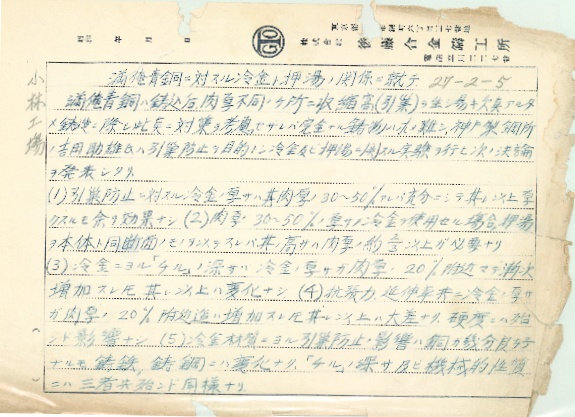 昭和 年 月 日
株式会社 後藤合金鋳工所
小林工場
満俺青銅ニ対スル冷金ト押湯ノ関係ニ就テ 27-2-5
満俺青銅ハ鋳込后肉厚不同ノ ケ所ニ収縮高(引巣)ヲ生シ易キ欠点アルタ
メ鋳造ニ際シ此点ニ対策ヲ考慮セサレバ完全ナル鋳物ハ 難シ 神戸製鋼所
ノ吉田助雄氏ハ引巣防止ヲ目的トシ冷金及ビ押湯ニ関スル実験ヲ行ヒ次ノ決論
ヲ発表シタリ
(1)引巣防止ニ対スル冷金ノ厚サハ其肉厚ノ30~50%アレバ充分ニシテ其レ以上厚
クスルモ余リ効果ナシ (2)肉厚ノ30~50%ノ厚サノ冷金ヲ使用セル場合押湯
ヲ本体ト同断面ノモノ トスレバ其ノ高サハ肉厚ノ約 以上ガ必要ナリ
(3)冷金ニヨル「チル」ノ深サハ冷金ノ厚サガ肉厚ノ20%附近マデ漸次
増加スレ𪜈其レ以上ハ変化ナシ (4)抗張力、延伸率共ニ冷金ノ厚サ
ガ肉厚ノ20%附近迄ハ増加スレ𪜈其レ以上ハ大差ナク、硬度ニハ殆
ンド影響ナシ (5)冷金材質ニヨル引巣防止ノ影響ハ銅ガ幾分良好
ナルモ鋳鉄、鋳鋼ニハ変化ナク、「チル」ノ深サ及ビ機械的性質
ニハ三者共殆ンド同様ナリ